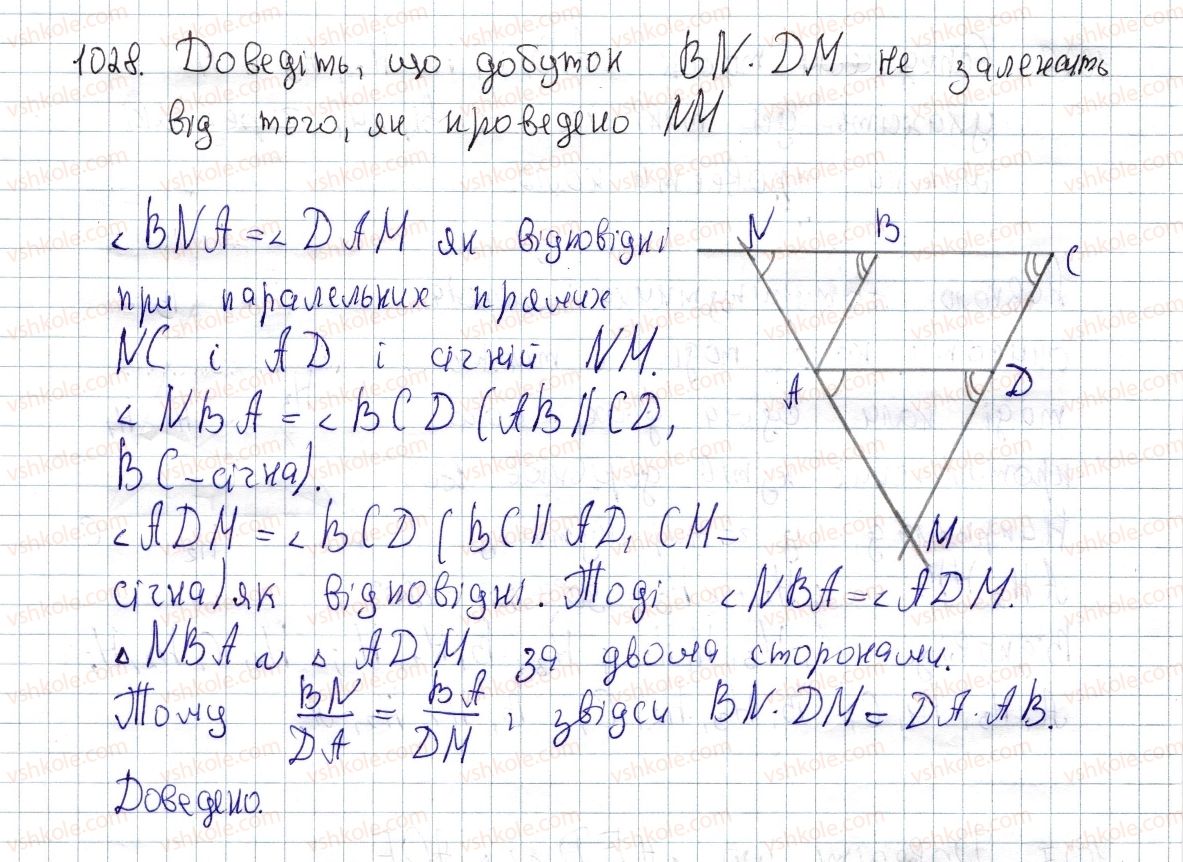 1028. Доведіть, що добуток BN · DM не залежить
від того, як проведено NM
∠BNA = ∠DAM як відповідні
при паралельних прямих
NC і AD і січній NM.
∠NBA = ∠BCD (AB || CD,
BC – січна).
∠ADM = ∠BCD (BC || AD, CM –
січна) як відповідні. Тоді ∠NBA = ∠ADM.
△NBA ∾ △ADM за двома сторонами.
Тому BN/DA = BA/DM, звідси BN · DM = DA · AB.
Доведено.
N B C
A D
M
vshkole.com